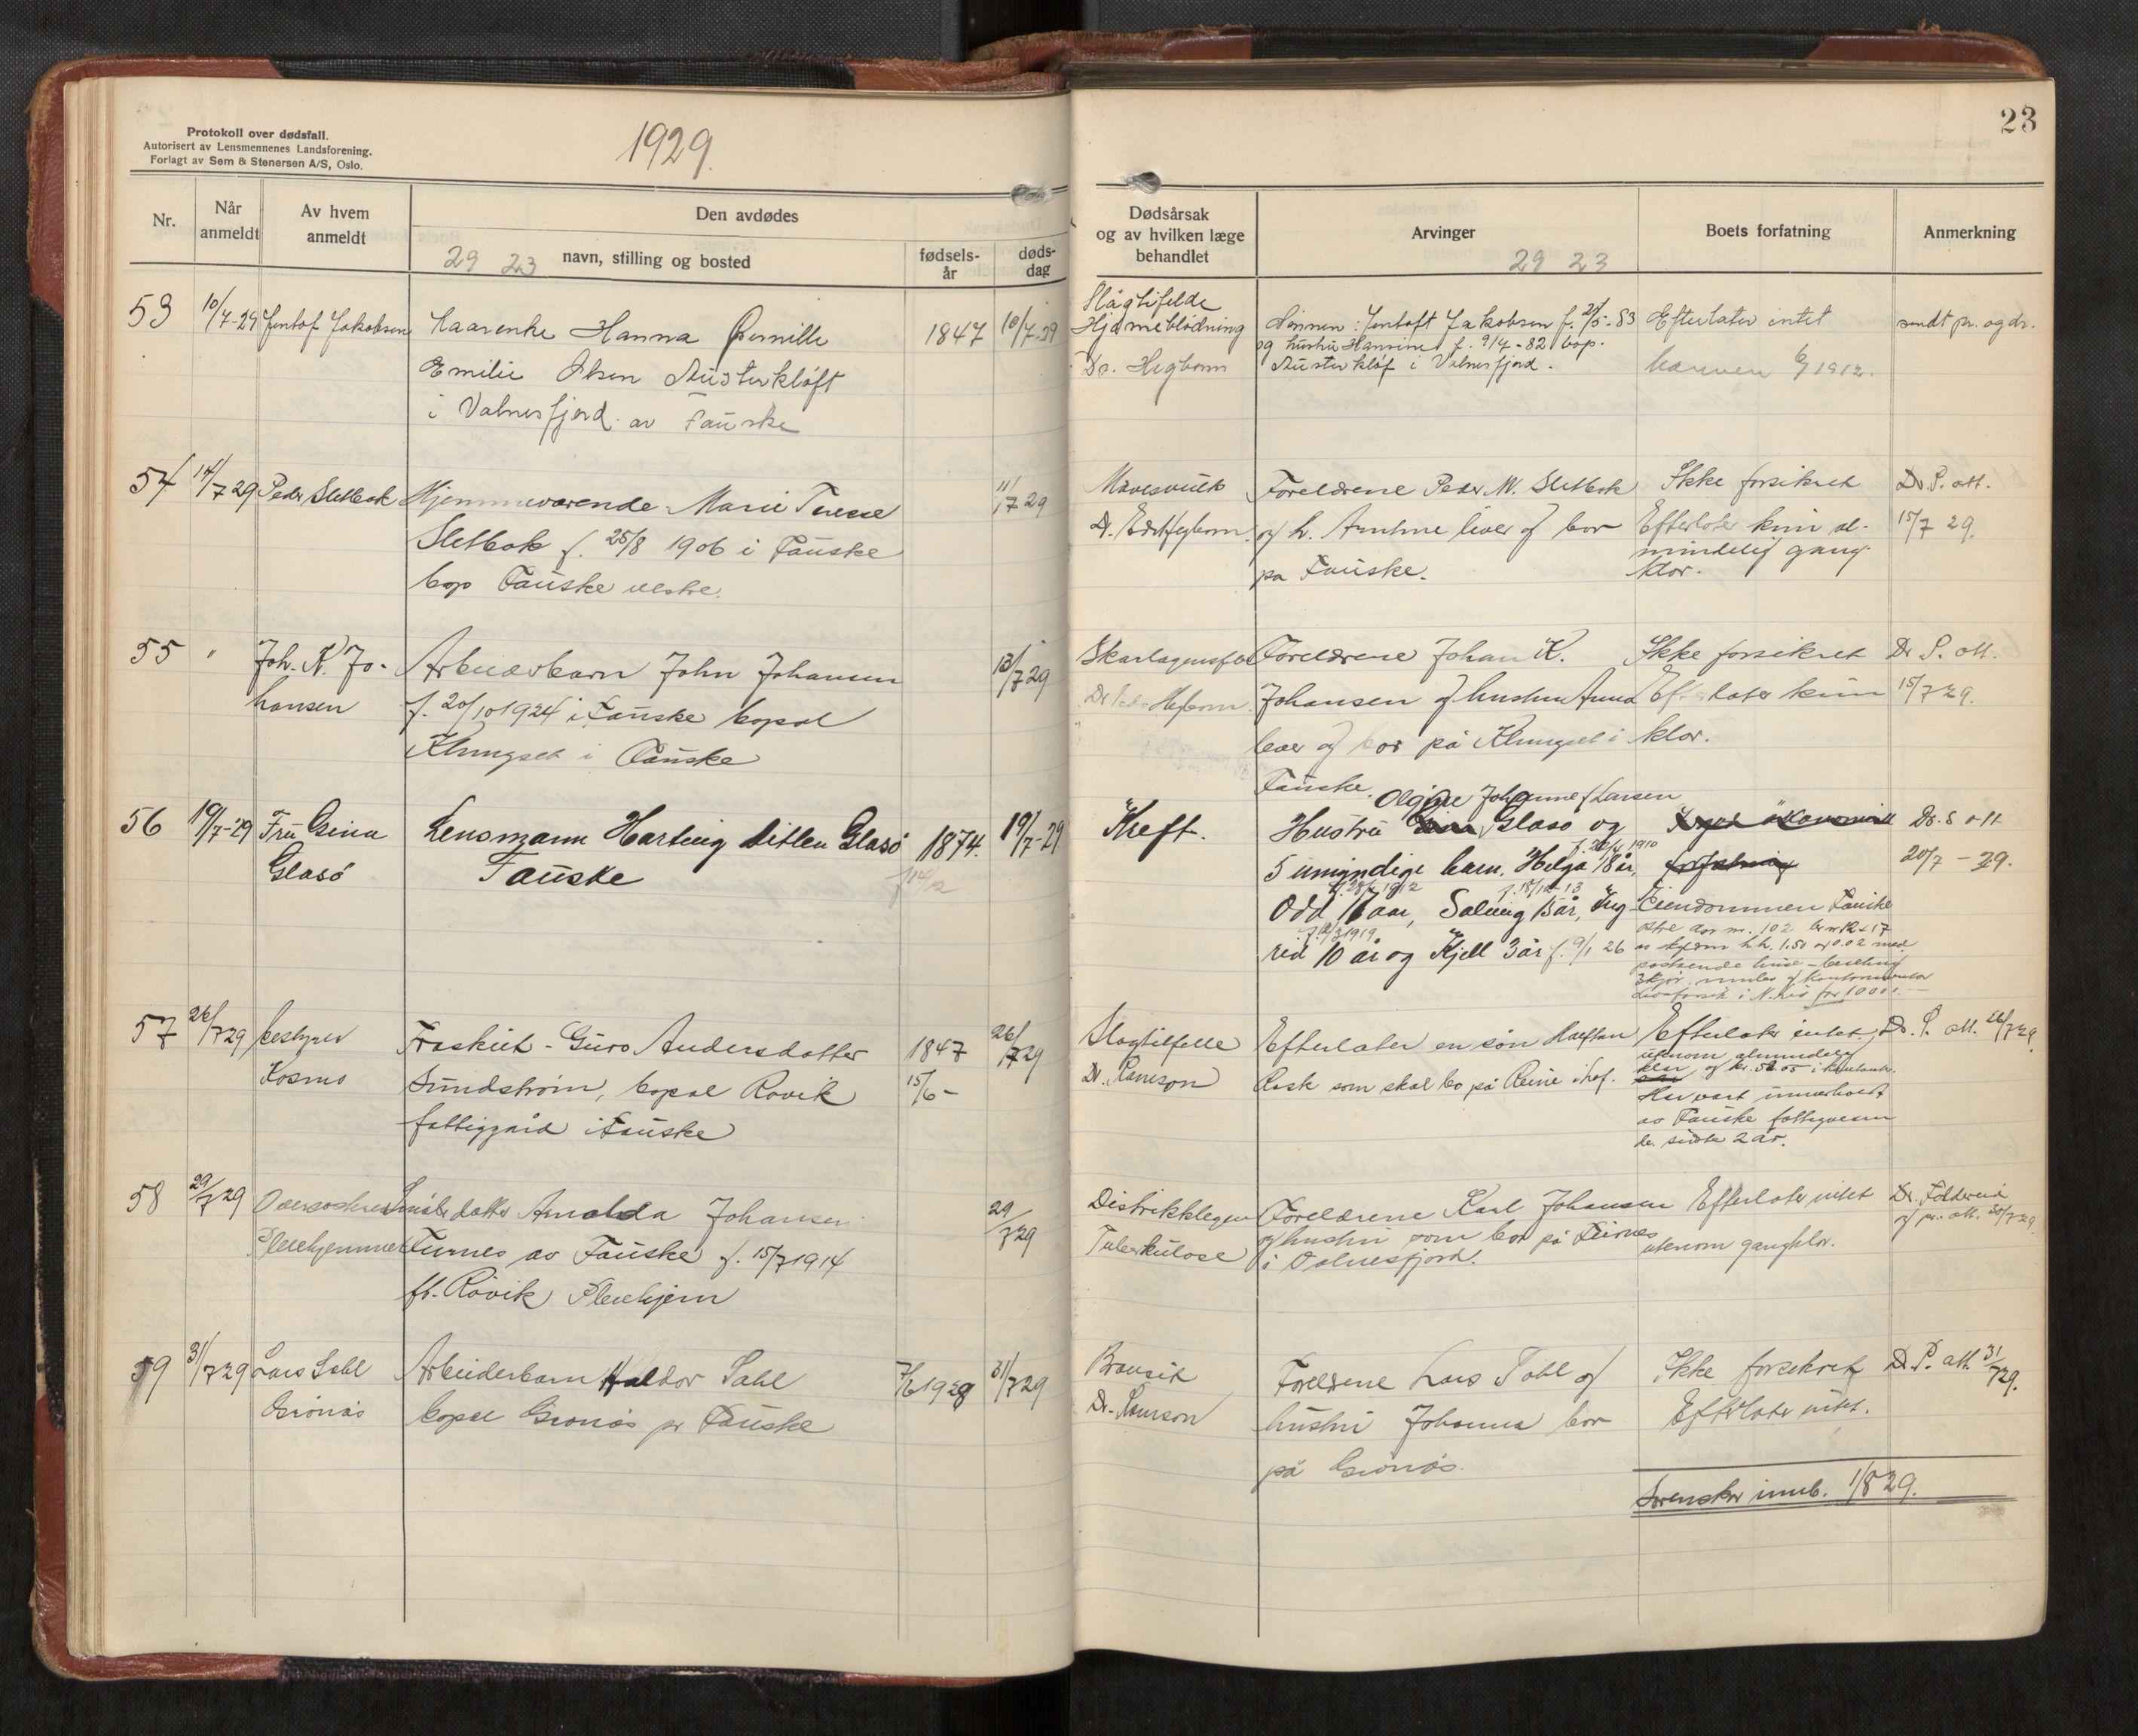 Protokoll over dødsfall.
Autorisert av Lensmennenes Landsforening.
Forlagt av Sem & Stenersen A/S, Oslo.
1929.
23
Nr.
Når anmeldt
Av hvem anmeldt
Den avdødes
29 23 navn, stilling og bosted
fødsels-år
døds-dag
Dødsårsak og av hvilken læge behandlet
Arvinger
29 23
Boets forfatning
Anmerkning
53 10/7-29 Jentof Jakobsen
Kaarenke Hanna Pernille
Emilie Olsen Austerkløft
i Valnesfjord av Fauske
1847 10/7-29
Slagtifelde
Hjerneblødning
Dr. Hegbom
Sønnen: Jentoft Jakobsen f. 21/5-83
og hustru Hansine f. 9/4-82 bop.
Austerkløf i Valnesfjord.
Efterlater intet
6/7 1912.
sendt pr. og dr.
54 14/7 29 Peder Sletbak
Hjemmeværende Marie Terese
Sletbak f. 25/8 1906 i Fauske
bop Fauske vestre.
11/7 29
Mavesvulst
Foreldrene Peder M. Sletbak
og h. lever og bor
på Fauske.
Ikke forsikret
Efterlater kun al-
mindelig gang-
klær.
Dr. P. att.
15/7 29.
55 " Joh. K. Jo-
hansen
Arbeiderbarn John Johansen
f. 20/10 1924 i Fauske bopæl
Klungset i Fauske
13/7 29
Skarlagensfeber
Dr. Hegbom
Foreldrene Johan K.
Johansen og hustru Anna
lever og bor på Klungset i
Fauske.
Ikke forsikret
Efterlater kun
klær.
Dr P. att.
15/7 29.
56 19/7-29 Fru Gina
Glasø
Lensmann Hartvig Ditlev Glasø
Fauske
1874. 19/7-29
f 14/12
Kreft.
Olgine Johanne f Larsen
Hustru Glasø og
f. 1910
5 umyndige barn, Helga 18 år,
1912 f. 18/12-13
Odd 17 aar, Solveig 15 år, Ing-
1919
rid 10 år og Kjell 3 år f. 9/1 26
Eiendommen Fauske
Dr. S att
20/7-29.
57 26/7 29 bestyrer
Kosmo
Fraskilt Guro Andersdatter
Sundstrøm, bopæl Røvik
fattiggård i Fauske
1847
15/6-
26/7 29
Slagtilfelle
Efterlater en søn Halftan
Rask som skal bo på Reine i Lof.
Efterlater intet
utenom almindelig
klær, og kr.
Har vært
av Fauske fattigvesen
de siste 2 år.
Dr. P. att. 26/7 29.
58 29/7 29 Oversøsteren
Pleiehjemmet
Småbr. datter Arnolda Johansen
Furnes av Fauske f. 15/7 1914
ft. Røvik Pleiehjem
29/7 29
Distriktslegen
Tuberkulose
Foreldrene Karl Johansen
og hustru som bor på Furnes
i Valnesfjord.
Efterlater intet
utenom gangklær.
og pr. att. 30/7 29
59 31/7 29 Lars Tahl
Grønås
Arbeiderbarn Haldor Tahl
bopæl Grønås pr Fauske
7/6 1929 31/7 29
Foreldrene Lars Tahl og
hustru Johanna bor
på Grønås.
Ikke forsikret
Efterlater intet.
Dr. P. att. 31/7 29.
Sorenskr innb. 1/8 29.